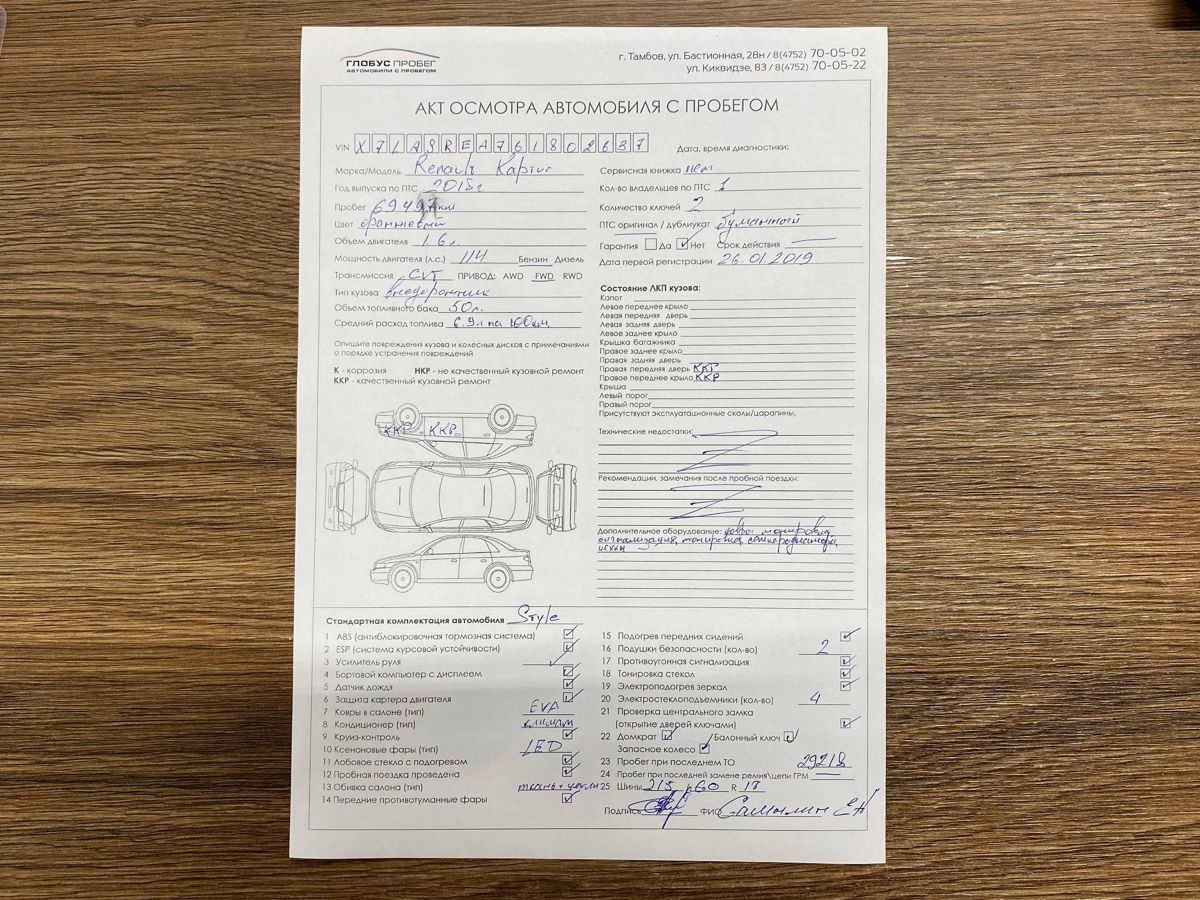 ГЛОБУС ПРОБЕГ
АВТОМОБИЛИ С ПРОБЕГОМ
г. Тамбов, ул. Бастионная, 28н / 8(4752) 70-05-02
ул. Киквидзе, 83 / 8(4752) 70-05-22
АКТ ОСМОТРА АВТОМОБИЛЯ С ПРОБЕГОМ
VIN X7LASREA761802637
Дата, время диагностики:
Марка/Модель Renault Каптюр
Год выпуска по ПТС 2018г
Пробег 69497 км
Цвет оранжевый
Объем двигателя 1.6 л.
Мощность двигателя (л.с.) 114 Бензин Дизель
Трансмиссия CVT ПРИВОД: AWD FWD RWD
Тип кузова внедорожник
Объем топливного бака 50л.
Средний расход топлива 6.9л на 100км.
Опишите повреждения кузова и колесных дисков с примечаниями
о порядке устранения повреждений
К - коррозия НКР - не качественный кузовной ремонт
ККР - качественный кузовной ремонт
ККР ККР
Сервисная книжка нет
Кол-во владельцев по ПТС 1
Количество ключей 2
ПТС оригинал / дубликат бумажный
Гарантия Да Нет Срок действия
Дата первой регистрации 26.01.2019
Состояние ЛКП кузова:
Капот
Левое переднее крыло
Левая передняя дверь
Левая задняя дверь
Левое заднее крыло
Крышка багажника
Правое заднее крыло
Правая задняя дверь
Правая передняя дверь ККР
Правое переднее крыло ККР
Крыша
Левый порог
Правый порог
Присутствуют эксплуатационные сколы/царапины.
Технические недостатки:
Рекомендации, замечания после пробной поездки:
Дополнительное оборудование:
сигнализация, тонировка,
чехлы
Стандартная комплектация автомобиля Style
1 ABS (антиблокировочная тормозная система)
2 ESP (система курсовой устойчивости)
3 Усилитель руля
4 Бортовой компьютер с дисплеем
5 Датчик дождя
6 Защита картера двигателя
7 Ковры в салоне (тип) EVA
8 Кондиционер (тип) климат
9 Круиз-контроль
10 Ксеноновые фары (тип) LED
11 Лобовое стекло с подогревом
12 Пробная поездка проведена
13 Обивка салона (тип) ткань + чехлы
14 Передние противотуманные фары
15 Подогрев передних сидений
16 Подушки безопасности (кол-во) 2
17 Противоугонная сигнализация
18 Тонировка стекол
19 Электроподогрев зеркал
20 Электростеклоподъемники (кол-во) 4
21 Проверка центрального замка
(открытие дверей ключами)
22 Домкрат Балонный ключ
Запасное колесо
23 Пробег при последнем ТО 29218
24 Пробег при последней замене ремня\цепи ГРМ
25 Шины 215 / 60 R 17
Подпись ФИО